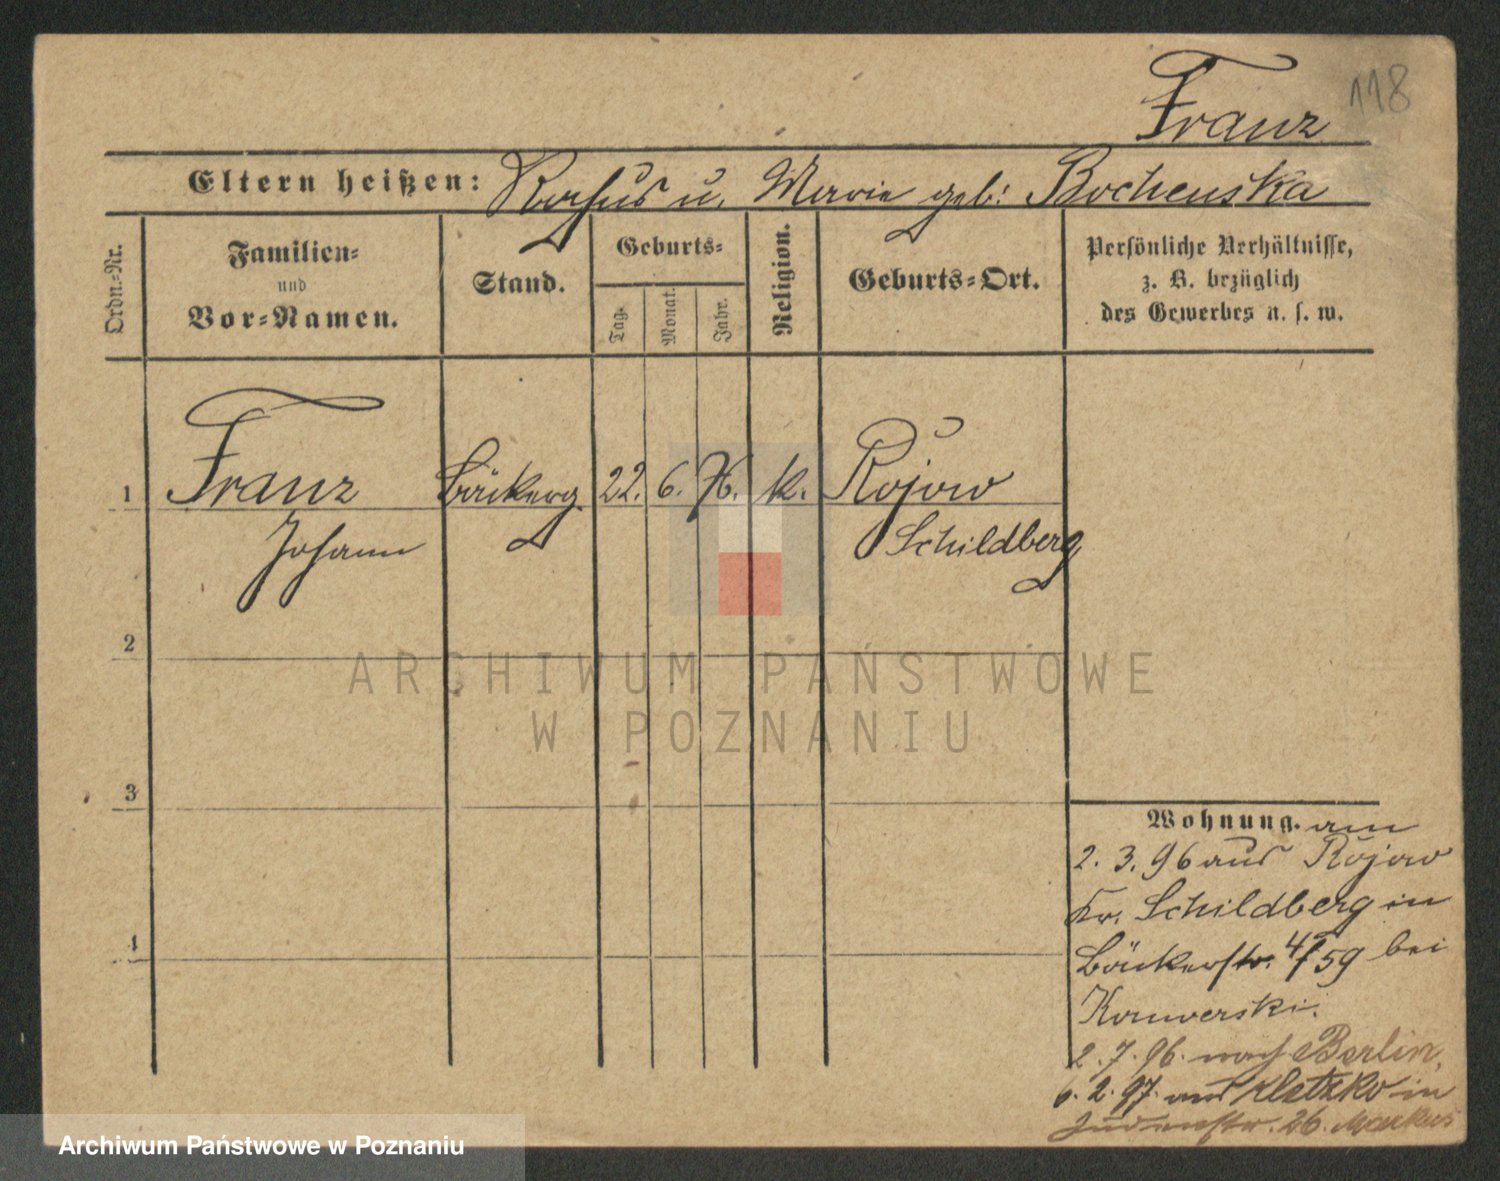 118
Franz
Eltern heißen: Rochus u. Marie geb: Bochenska
Ordn.-Nr.
Familien-
und
Vor-Namen.
Stand.
Geburts-
Tag.
Monat.
Jahr.
Religion.
Geburts-Ort.
Persönliche Verhältnisse,
z. B. bezüglich
des Gewerbes u. s. w.
1 Franz Bäckerg. 22. 6. 76. k. Rojow
Johann Schildberg
2
3
4
Wohnung. am
2. 3. 96 aus Rojow
Kr. Schildberg in
Bäckerstr. 4/59 bei
2. 7. 96. nach Berlin,
6. 2. 97. aus Kletzko in
Judenstr. 26. Markus
ARCHIWUM PAŃSTWOWE
W POZNANIU
Archiwum Państwowe w Poznaniu